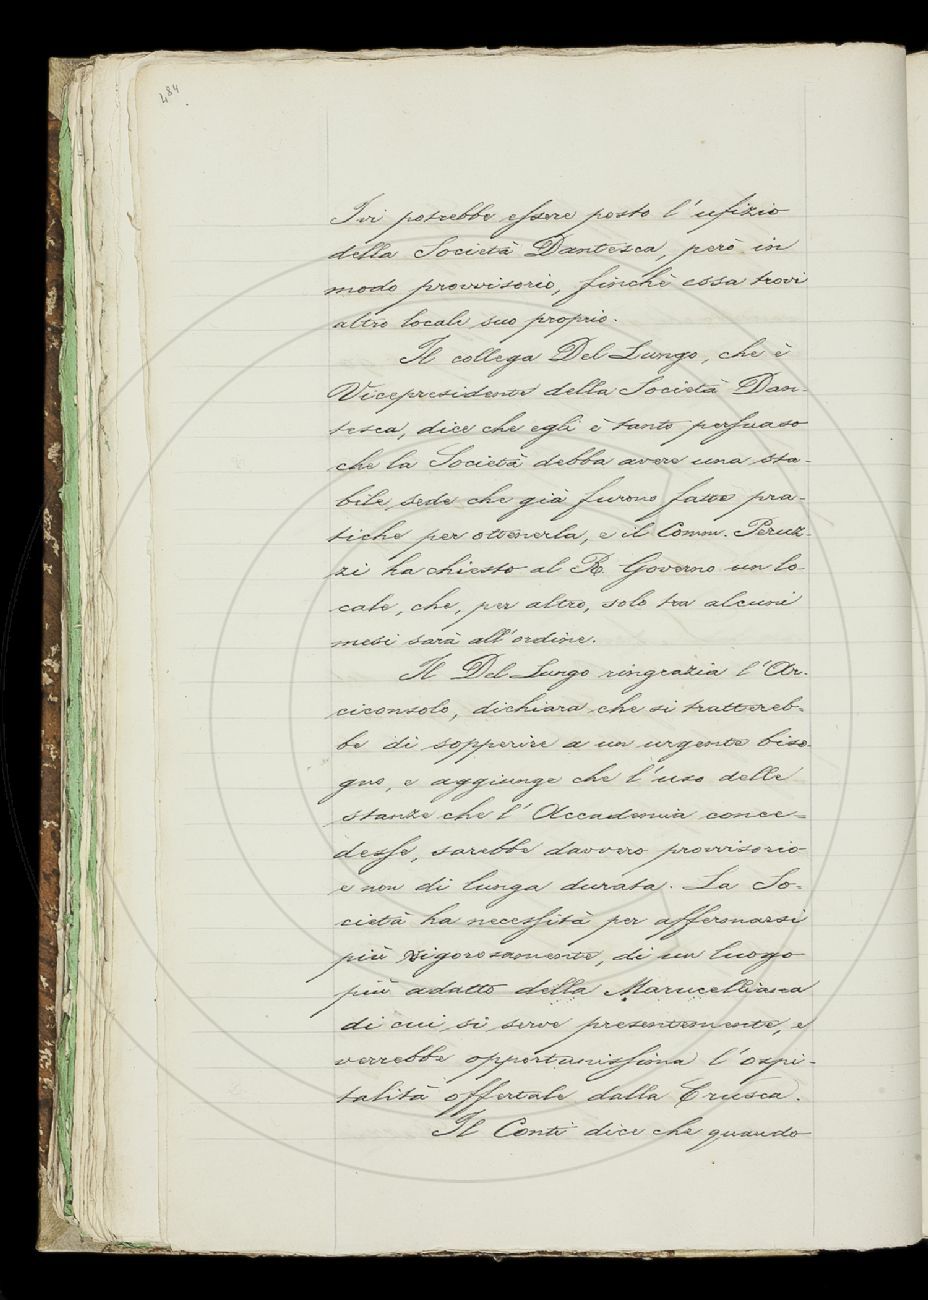 484
Ivi potrebbe essere posto l'ufizio
della Società Dantesca, però in
modo provvisorio, finchè essa trovi
altro locale suo proprio.
Il collega Del Lungo, che è
Vicepresidente della Società Dan-
tesca, dice che egli è tanto persuaso
che la Società debba avere una sta-
bile sede che già furono fatte pra-
tiche per ottenerla, e il Comm. Peruz-
zi ha chiesto al R. Governo un lo-
cale, che, per altro, solo tra alcuni
mesi sarà all'ordine.
Il Del Lungo ringrazia l'Ar-
ciconsolo, dichiara che si trattereb-
be di sopperire a un urgente biso-
gno, e aggiunge che l'uso delle
stanze che l'Accademia conce-
desse, sarebbe davvero provvisorio
e non di lunga durata. La So-
cietà ha necessità per affermarsi
più vigorosamente, di un luogo
più adatto della Marucelliana
di cui si serve presentemente, e
verrebbe opportunissima l'ospi-
talità offertale dalla Crusca.
Il Conti dice che quando